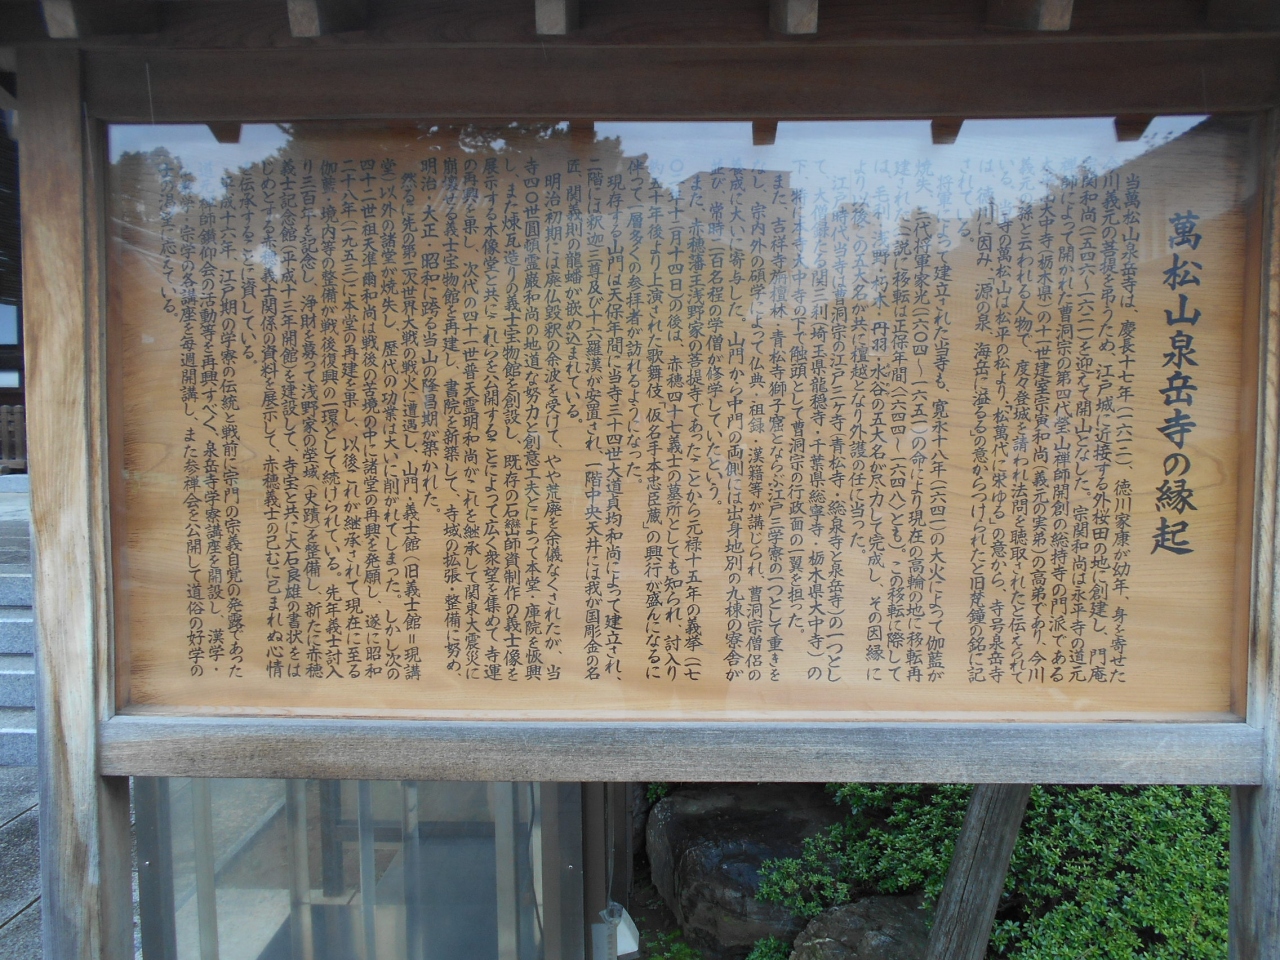 萬松山泉岳寺の縁起
当萬松山泉岳寺は、慶長十七年(一六一二)、徳川家康が幼年、身を寄せた
今川義元の菩提を弔うため、江戸城に近接する外桜田の地に創建し、門庵
宗関和尚(一五四六〜一六二一)を迎えて開山となした。宗関和尚は永平寺の道元
禅師によって開かれた曹洞宗の
大中寺(栃木県)の十一世建室宗寅和尚(義元の実弟)の高弟であり、今川
義元の孫と云われる人物で、度々登城を請われ法問を聴取されたと伝えられて
いる。当寺の萬松山は、松平の松より、「松萬代に栄ゆる」の意から、寺号泉岳寺
は、徳川に因み、「源の泉、海岳に溢るる」の意からつけられたと旧梵鐘の銘に記
されている。
将軍によって建立された当寺も、寛永十八年(一六四一)の大火によって伽藍が
焼失、三代将軍家光(一六〇四〜一六五一)の命により現在の高輪の地に移転再
建れ(一説に移転は正保年間〈一六四四〜一六四八〉とも)。この移転に際して
は、毛利・浅野・朽木・丹羽・水谷の五大名が尽力して完成し、その因縁に
より以後この五大名が共に檀越となり外護の任に当った。
江戸時代、当寺は曹洞宗の江戸三ケ寺(青松寺・総泉寺・泉岳寺)の一つとし
て、大僧録たる関三刹(埼玉県龍穏寺・千葉県総寧寺・栃木県大中寺)の
下、特に大中寺の下で触頭として曹洞宗の行政面の一翼を担った。
また、吉祥寺旃檀林・青松寺獅子窟とならぶ江戸三学寮の一つとして重きを
なし、宗内外の碩学によって仏典・祖録・漢籍等が講じられ、曹洞宗僧侶の
養成に大いに寄与した。山門から中門の両側には出身地別の九棟の寮舎が
並び、常時二百名程の学僧が修学していたという。
また、赤穂藩主浅野家の菩提寺であったことから元禄十五年の義挙(一七
〇二年十二月十四日)の後は、赤穂四十七義士の墓所としても知られ、討入り
の五十年後より上演された歌舞伎「仮名手本忠臣蔵」の興行が盛んになるに
伴って層多くの参拝者が訪れるようになった。
現存する山門は天保年間に当寺三十四世大道貞均和尚によって建立され、
二階には釈迦三尊及び十六羅漢が安置され、一階中央天井には我が国彫金の名
匠、関義則の龍蟠が嵌め込まれている。
明治初期には廃仏毀釈の余波を受けて、やや荒廃を余儀なくされたが、当
寺四〇世圓頓霊巌和尚の地道な努力と創意工夫によって本堂・庫院を恢興
し、また煉瓦造りの義士宝物館を創設し、既存の石
展示する木像堂と共にこれらを公開することによって広く衆望を集めて寺運
の再興を果し、次代の四十一世普天霊明和尚がこれを継承して関東大震災に
崩壊せる義士宝物館を再建し、書院を新築して、寺域の拡張・整備に努め、
明治・大正・昭和に跨る当山の隆昌期が築かれた。
然るに先の第二次世界大戦の戦火に遭遇し、山門、義士館(旧義士館=現講
堂)以外の諸堂が焼失し、歴代の功業は大いに削がれてしまった。しかし次の
四十二世祖天準爾和尚は戦後の苦境の中に諸堂の再興を発願し、遂に昭和
二十八年(一九五三)に本堂の再建を果し、以後これが継承されて現在に至る
伽藍・境内等の整備が戦後復興の一環として続けられている。先年義士討入
り三百年を記念し、浄財を募って浅野家の塋域(史蹟)を整備し、新たに赤穂
義士記念館(平成十三年開館)を建設して、寺宝と共に大石良雄の書状をは
じめとする赤穂義士関係の資料を展示して、赤穂義士の已むに已まれぬ心情
を伝承することに資している。
平成十六年、江戸期の学寮の伝統と戦前に宗門の宗義自覚の発露であった
道元禅師鑽仰会の活動等を再興すべく、泉岳寺学寮講座を開設し、漢学・
宗学の各講座を毎週開講し、また参禅会も公開して道俗の好学の